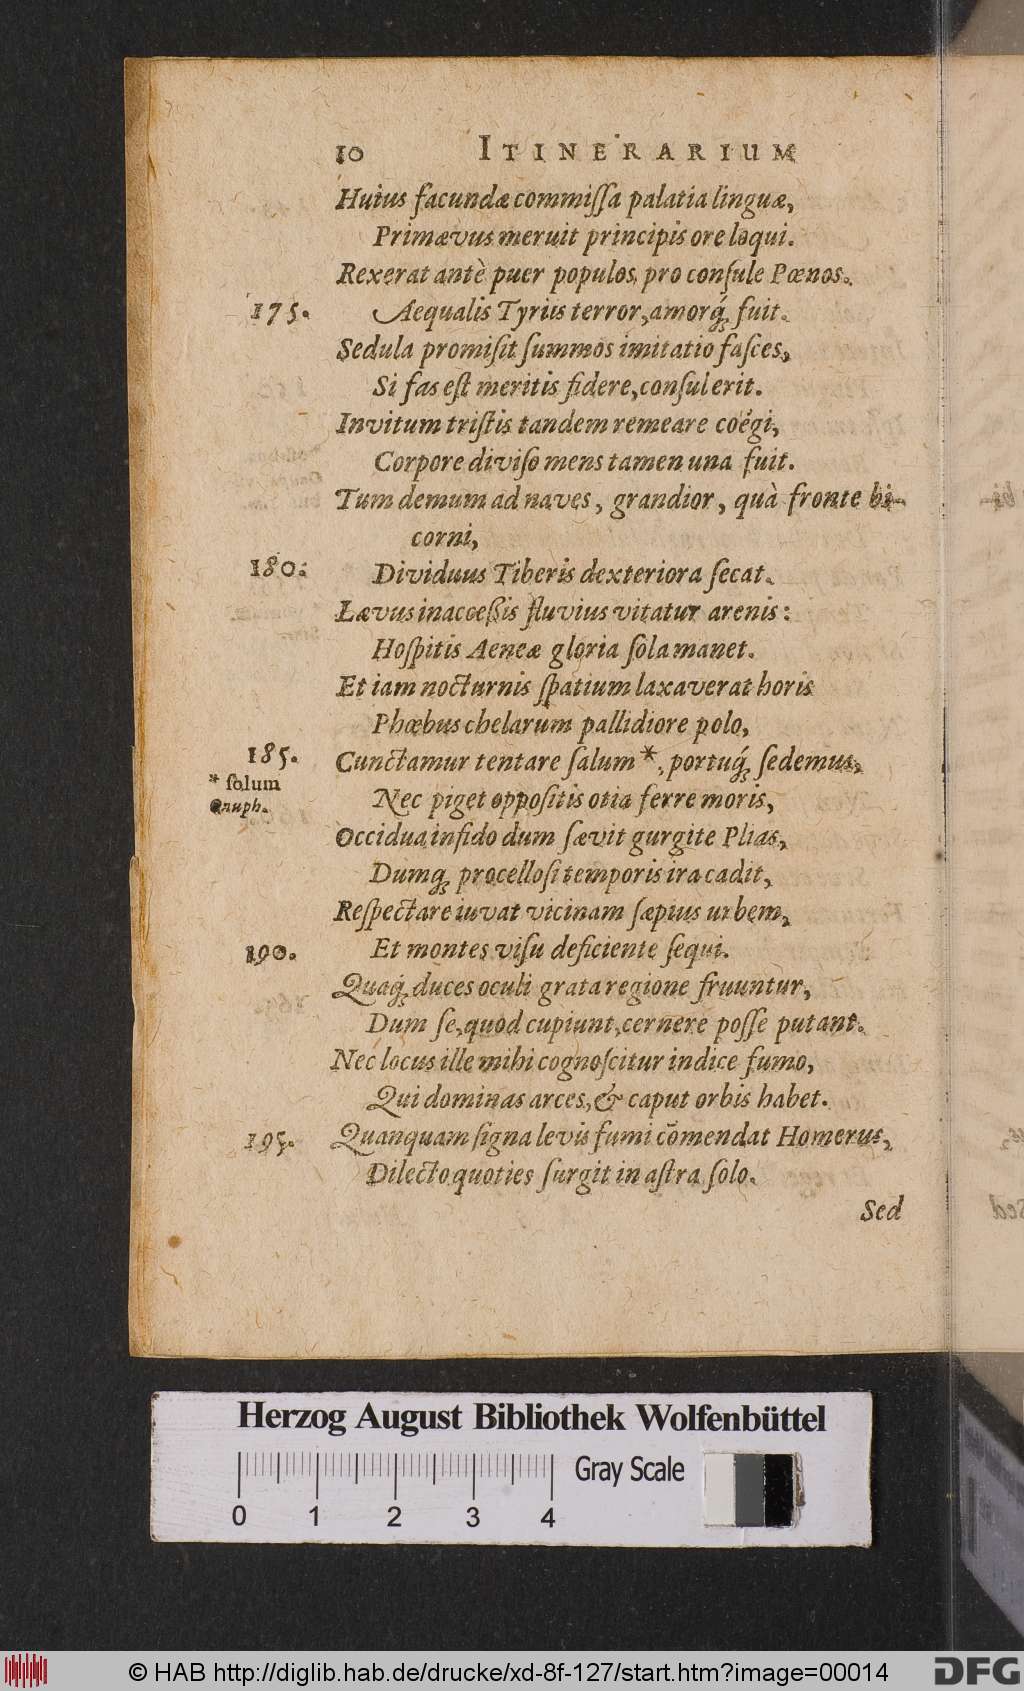 10 ITINERARIUM
Huius facundæ commiſſa palatia linguæ,
Primævus meruit principis ore loqui.
Rexerat antè puer populos, pro conſule Pœnos.
175. Aequalis Tyriis terror, amorq́; fuit.
Sedula promiſit ſummos imitatio faſces,
Si fas eſt meritis fidere, conſul erit.
Invitum triſtis tandem remeare coëgi,
Corpore diviſo mens tamen una fuit.
Tum demum ad naves, grandior, quà fronte bi-
corni,
180. Dividuus Tiberis dexteriora ſecat.
Lævus inacceßis fluvius vitatur arenis:
Hoſpitis Aeneæ gloria ſola manet.
Et iam nocturnis ſpatium laxaverat horis
Phœbus chelarum pallidiore polo,
185. Cunctamur tentare ſalum *, portuq́; ſedemus,
* ſolum
Onuph.
Nec piget oppoſitis otia ferre moris,
Occidua infido dum ſævit gurgite Plias,
Dumq; procelloſi temporis ira cadit,
Reſpectare iuvat vicinam ſæpius urbem,
190. Et montes viſu deficiente ſequi.
Quaq́; duces oculi grata regione fruuntur,
Dum ſe, quod cupiunt, cernere poſſe putant.
Nec locus ille mihi cognoſcitur indice fumo,
Qui dominas arces, & caput orbis habet.
195. Quanquam ſigna levis fumi cōmendat Homerus,
Dilecto quoties ſurgit in aſtra ſolo.
Sed
Herzog August Bibliothek Wolfenbüttel
Gray Scale
0 1 2 3 4
© HAB http://diglib.hab.de/drucke/xd-8f-127/start.htm?image=00014
DFG